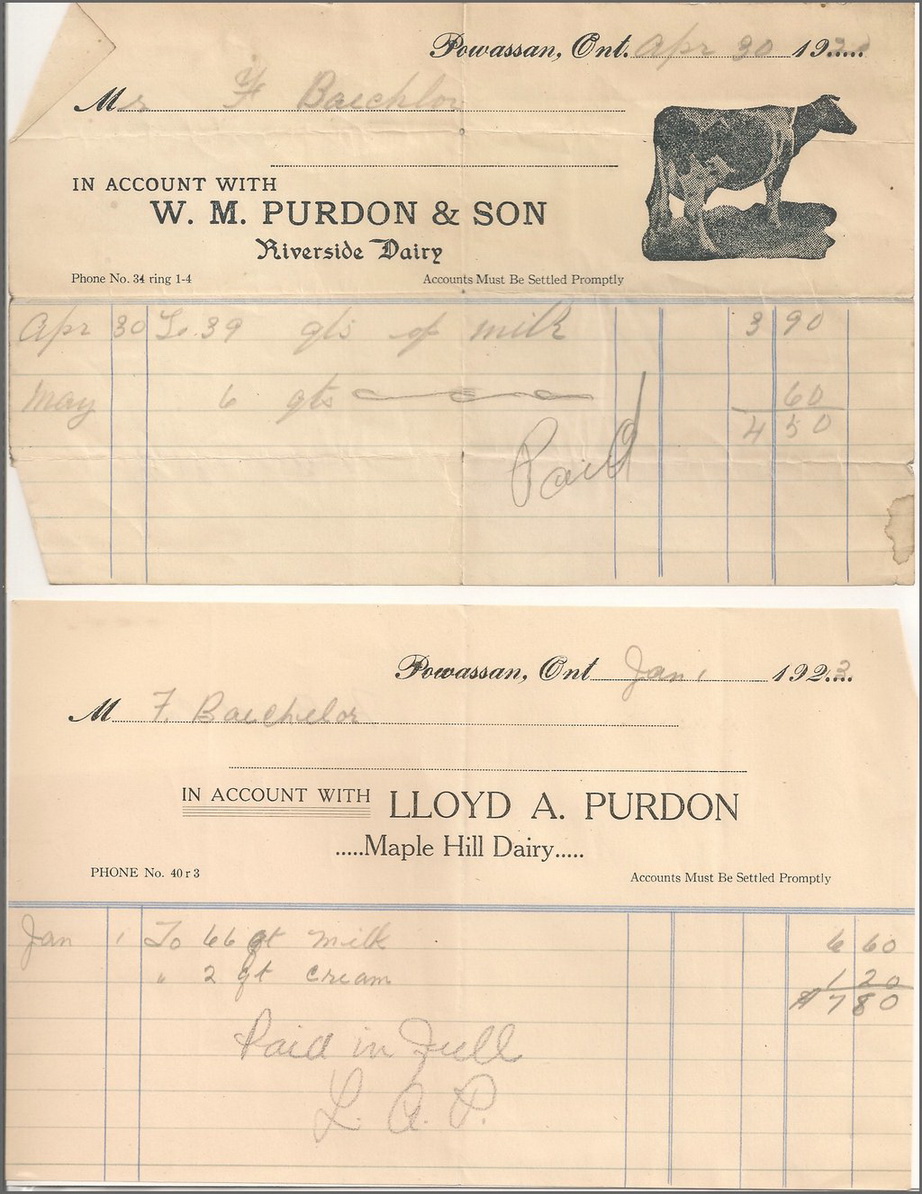 Powassan, Ont. Apr 30 19
Mr F Baechlor
IN ACCOUNT WITH
W. M. PURDON & SON
Riverside Dairy
Phone No. 34 ring 1-4 Accounts Must Be Settled Promptly
Apr 30 To 39 qts of milk 3 90
May 6 qts 60
4 50
Paid
Powassan, Ont Jan 1 1923
M F. Baechelor
IN ACCOUNT WITH LLOYD A. PURDON
.....Maple Hill Dairy.....
PHONE No. 40 r 3 Accounts Must Be Settled Promptly
Jan 1 To 66 qt milk 6 60
" 2 qt cream 1 20
$ 7 80
Paid in Full
L. A. P.